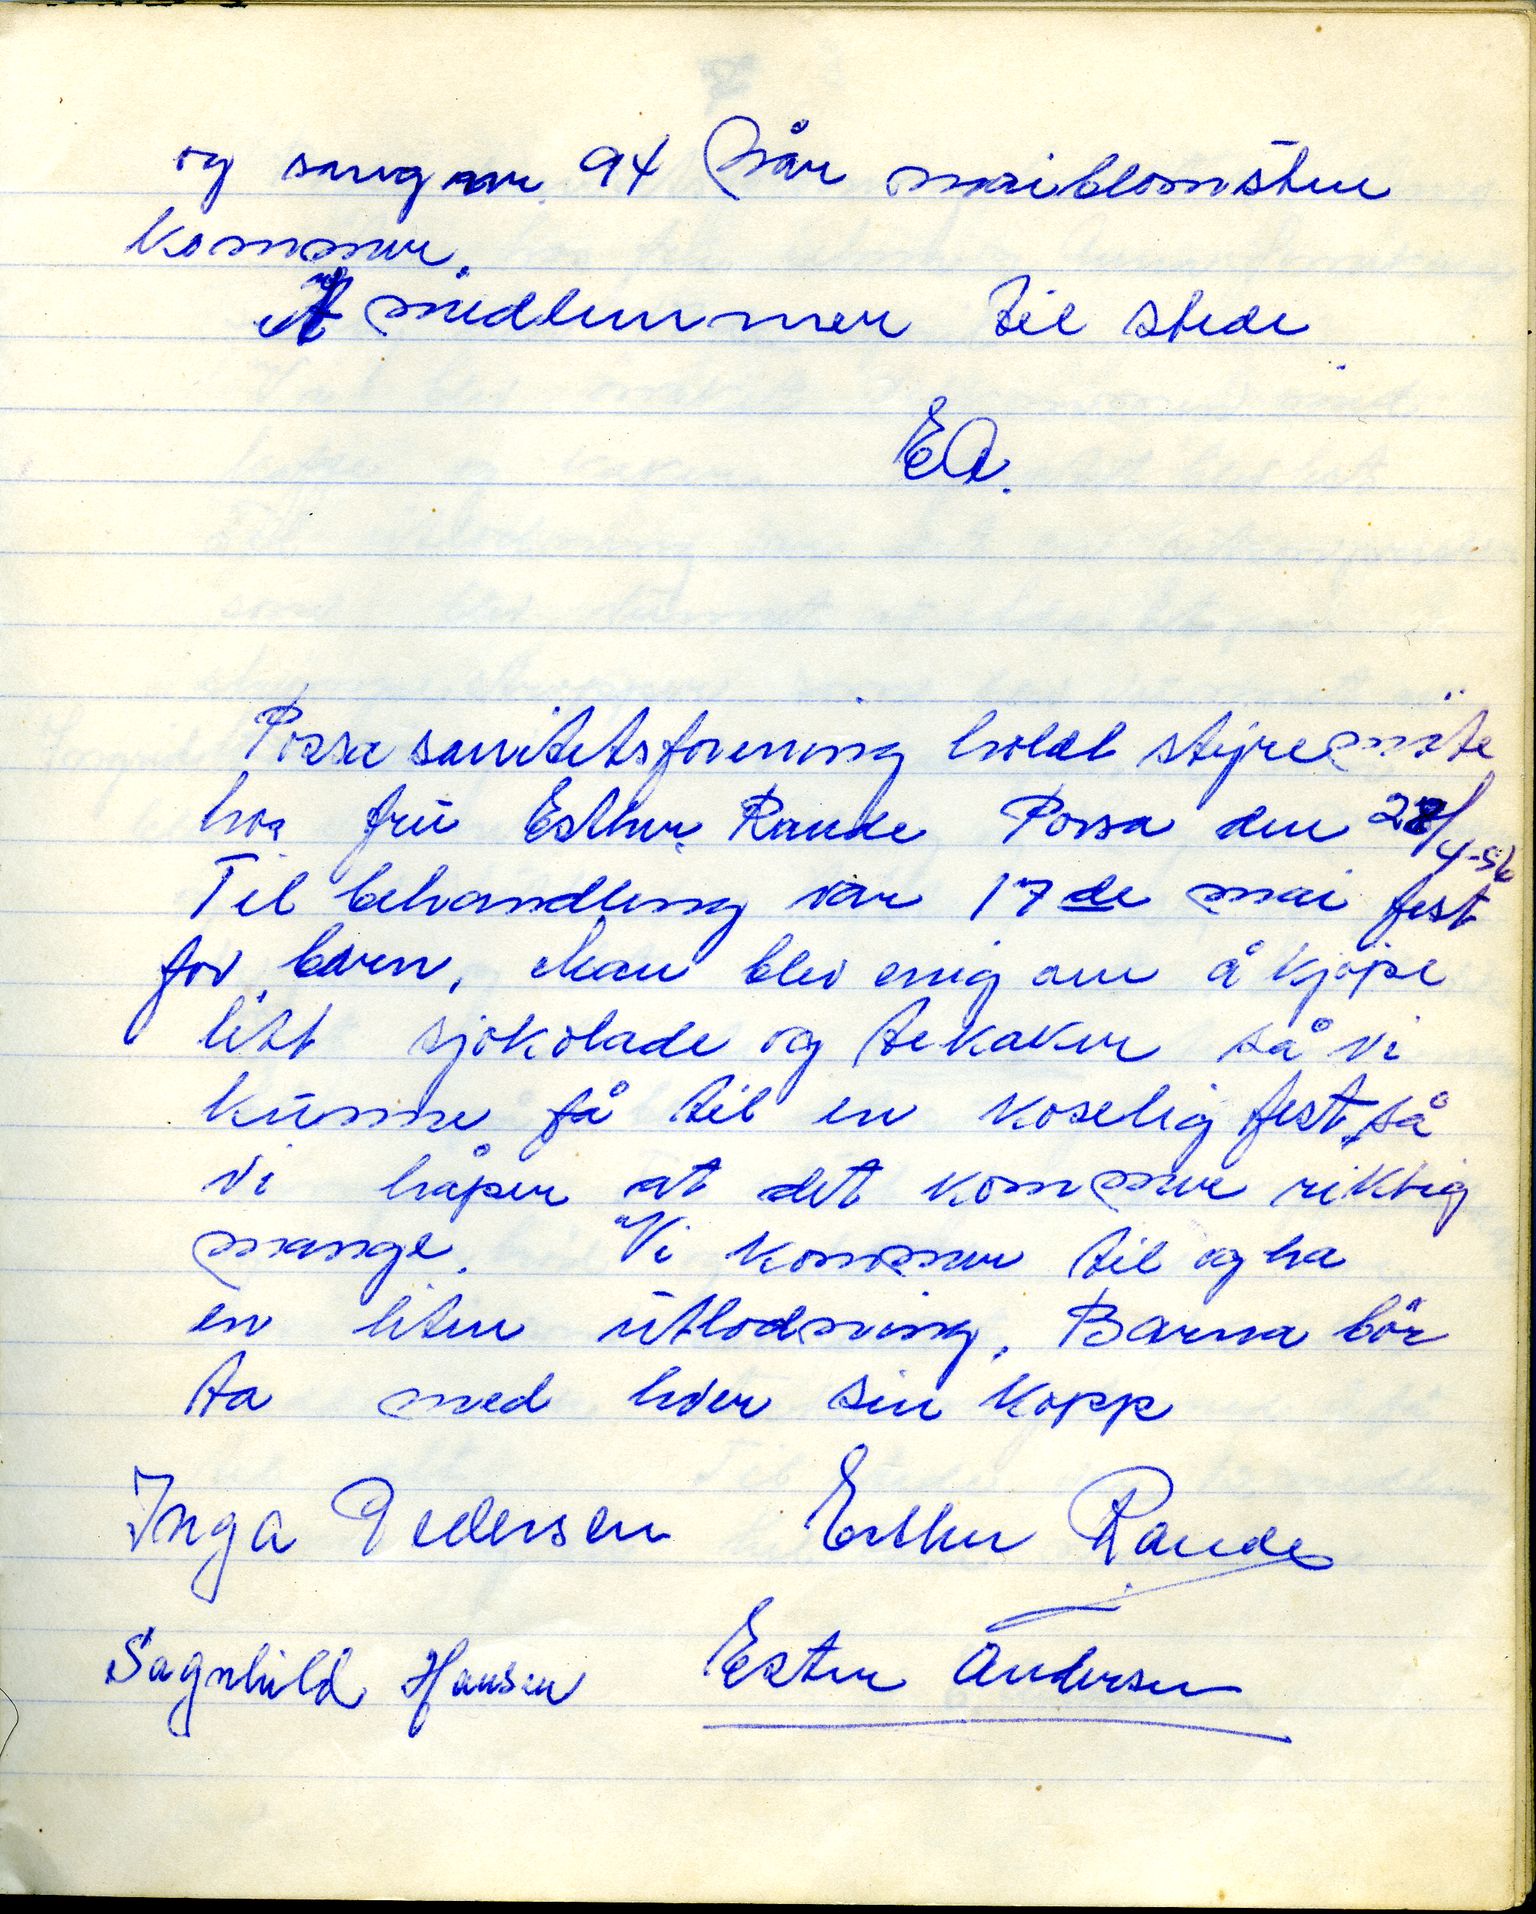 og sang nr. 94 Når maiblomsten
kommer.
medlemmer til stede.
EA.
Porsa sanitetsforening holdt styremöte
hos frü Esther Rande Porsa den 28/4-56
Til behandling var 17de mai fest
for barn. Man blev enig om å kjøpe
litt sjokolade og tekaker så vi
künne få til en koselig fest, så
vi håper at det kommer riktig
mange. Vi kommer til og ha
en liten ütlodning. Barna bör
ta med hver sin kopp
Inga Pedersen Esther Rande
Sagnhild Hansen Ester Andersen